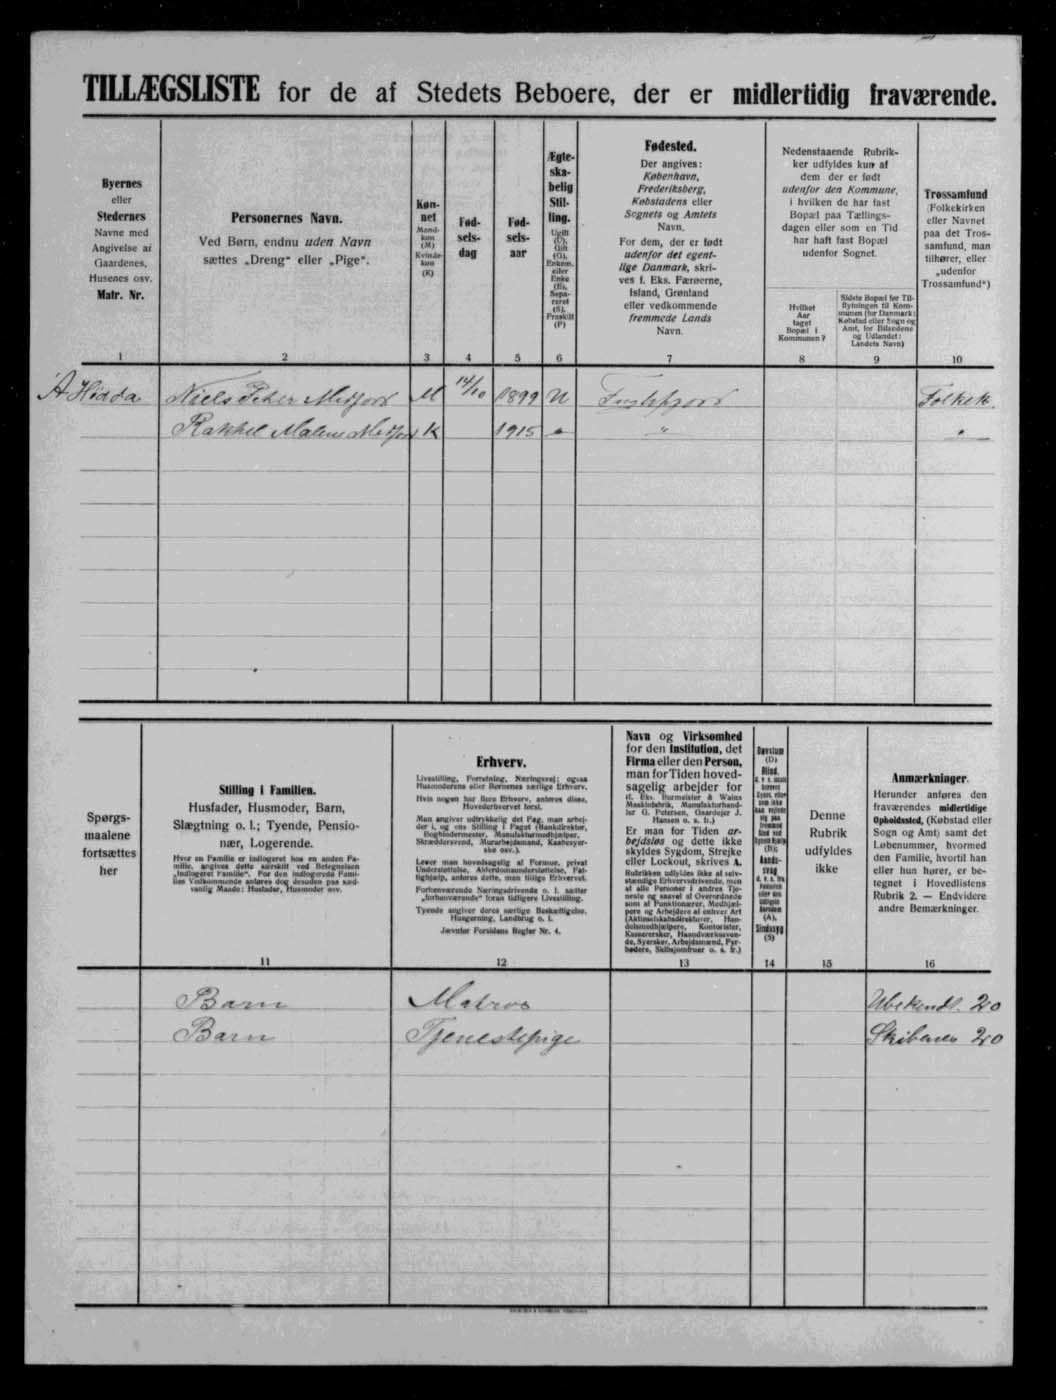 TILLÆGSLISTE for de af Stedets Beboere, der er midlertidig fraværende.
Byernes
eller
Stedernes
Navne med
Angivelse af
Gaardenes,
Husenes osv.
Matr. Nr.
1
Personernes Navn.
Ved Børn, endnu uden Navn
sættes „Dreng“ eller „Pige“.
2
Køn-
net
Mand-
køn
(M)
Kvinde-
køn
(K)
3
Fød-
sels-
dag
4
Fød-
sels-
aar
5
Ægte-
ska-
belig
Stil-
ling.
Ugift
(U),
Gift
(G),
Enkem.
eller
Enke
(E),
Sepa-
reret
(S),
Fraskilt
(F)
6
Fødested.
Der angives:
København,
Frederiksberg,
Købstadens eller
Sognets og Amtets
Navn.
For dem, der er født
udenfor det egent-
lige Danmark, skri-
ves f. Eks. Færøerne,
Island, Grønland
eller vedkommende
fremmede Lands
Navn.
7
Nedenstaaende Rubrik-
ker udfyldes kun af
dem der er født
udenfor den Kommune,
i hvilken de har fast
Bopæl paa Tællings-
dagen eller som en Tid
har haft fast Bopæl
udenfor Sognet.
Hvilket
Aar
taget
Bopæl i
Kommunen?
8
Sidste Bopæl før Til-
flytningen til Kom-
munen (for Danmark:
Købstad eller Sogn og
Amt, for Bilandene
og Udlandet:
Landets Navn)
9
Trossamfund
(Folkekirken
eller Navnet
paa det Tros-
samfund, man
tilhører, eller
„udenfor
Trossamfund“)
10
Niels Peter Midjord M 14/10 1899 U Folkek.
Rakkel Malene Midjord K 1915 " " "
Spørgs-
maalene
fortsættes
her
Stilling i Familien.
Husfader, Husmoder, Barn,
Slægtning o. l.; Tyende, Pensio-
nær, Logerende.
Hvor en Familie er indlogeret hos en anden Fa-
milie, angives dette særskilt ved Betegnelsen
„indlogeret Familie“. For den indlogerede Fami-
lies Vedkommende anføres dog desuden paa sæd-
vanlig Maade: Husfader, Husmoder osv.
11
Erhverv.
Livsstilling, Forretning, Næringsvej; ogsaa
Husmoderens eller Børnenes særlige Erhverv.
Hvis nogen har flere Erhverv, anføres disse,
Hovederhvervet først.
Man angiver udtrykkelig det Fag, man arbej-
der i, og ens Stilling i Faget (Bankdirektør,
Bogbindermester, Manufakturmedhjælper,
Skræddersvend, Murarbejdsmand, Kaabesyer-
ske osv.).
Lever man hovedsagelig af Formue, privat
Understøttelse, Alderdomsunderstøttelse, Fat-
tighjælp, anføres dette, men tillige Erhvervet.
Forhenværende Næringsdrivende o. l. sætter
„forhenværende“ foran tidligere Livsstilling.
Tyende angiver deres særlige Beskæftigelse,
Husgerning, Landbrug o. l.
Jævnfør Forsidens Regler Nr. 4.
12
Navn og Virksomhed
for den Institution, det
Firma eller den Person,
man for Tiden hoved-
sagelig arbejder for
(f. Eks. Burmeister & Wains
Maskinfabrik, Manufakturhand-
ler G. Petersen, Gaardejer J.
Hansen o. s. fr.)
Er man for Tiden ar-
bejdsløs og dette ikke
skyldes Sygdom, Strejke
eller Lockout, skrives A.
Rubrikken udfyldes ikke af selv-
stændige Erhvervsdrivende, men
af alle Personer i andres Tje-
neste og saavel af Overordnede
som af Funktionærer, Medhjæl-
pere og Arbejdere af enhver Art
(Aktieselskabsdirektører, Han-
delsmedhjælpere, Kontorister,
Kassererskere, Haandværkssven-
de, Syersker, Arbejdsmænd, Fyr-
bødere, Skibsjomfruer o. s. fr.)
13
Døvstum
(D)
Blind,
(B);
Aands-
svag
(A),
Sindssyg
(S)
14
Denne
Rubrik
udfyldes
ikke
15
Anmærkninger.
Herunder anføres den
fraværendes midlertidige
Opholdssted, (Købstad eller
Sogn og Amt) samt det
Løbenummer, hvormed
den Familie, hvortil han
eller hun hører, er be-
tegnet i Hovedlistens
Rubrik 2. — Endvidere
andre Bemærkninger.
16
Barn Matros Ubekendt. 20
Barn Tjenestepige Skibenes 20